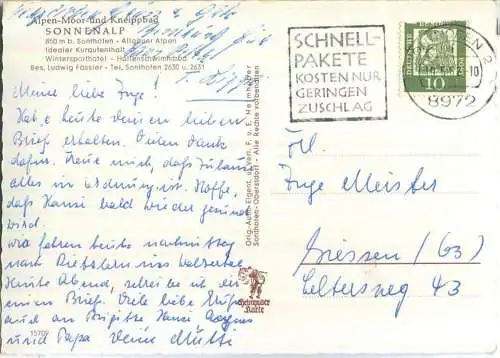 Alpen-Moor- und Kneippbad
SONNENALP
850 m b. Sonthofen - Allgäuer Alpen
Idealer Kuraufenthalt
Wintersporthotel - Hallenschwimmbad
Bes. Ludwig Fässler - Tel. Sonthofen 2630 u. 2631
Meine liebe Inge!
Habe heute deinen lieben
Brief erhalten. Vielen Dank
dafür. Freue mich, daß zuhause
alles in Ordnung ist. Hoffe,
daß Hansi bald wieder gesund
wird.
Wir fahren heute nachmittag
nach
Heute Abend, schreibe ich
einen Brief. Viele liebe Grüße
auch an Brigitte Hansi
und Papa Deine Mutti
15709
Orig.-Aufn. Eigent. u. Verl. F. u. E. Heimhuber
Sonthofen-Oberstdorf - Alle Rechte vorbehalten
Heimhuber
Karte
SCHNELL-
PAKETE
KOSTEN NUR
GERINGEN
ZUSCHLAG
DEUTSCHE BUNDESPOST
10
8972
Frl.
Inge Meister
Giessen
Seltersweg 43